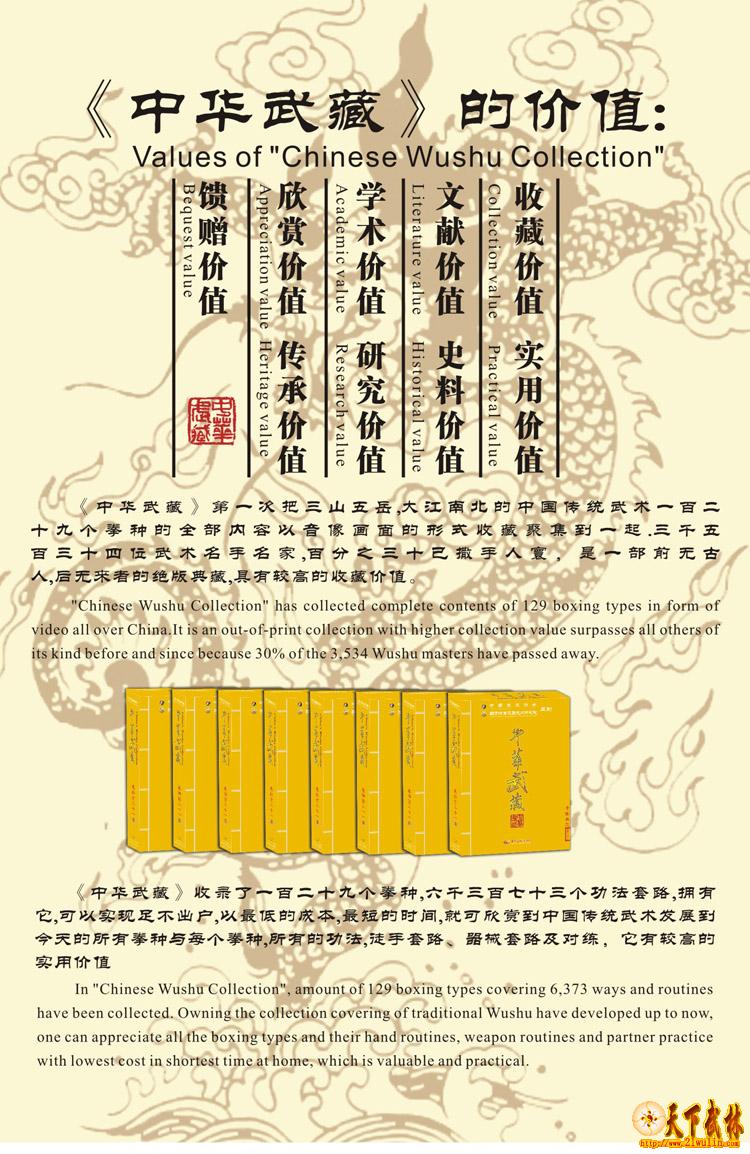 《中华武藏》的价值:
Values of "Chinese Wushu Collection"
收藏价值 实用价值
Collection value Practical value
文献价值 史料价值
Literature value Historical value
学术价值 研究价值
Academic value Research value
欣赏价值 传承价值
Appreciation value Heritage value
馈赠价值
Bequest value
中华武藏
《中华武藏》第一次把三山五岳,大江南北的中国传统武术一百二
十九个拳种的全部内容以音像画面的形式收藏聚集到一起.三千五
百三十四位武术名手名家,百分之三十已撒手人寰，是一部前无古
人,后无来者的绝版典藏,具有较高的收藏价值。
"Chinese Wushu Collection" has collected complete contents of 129 boxing types in form of
video all over China.It is an out-of-print collection with higher collection value surpasses all others of
its kind before and since because 30% of the 3,534 Wushu masters have passed away.
中华武藏
《中华武藏》收录了一百二十九个拳种,六千三百七十三个功法套路,拥有
它,可以实现足不出户,以最低的成本,最短的时间,就可欣赏到中国传统武术发展到
今天的所有拳种与每个拳种,所有的功法,徒手套路、器械套路及对练，它有较高的
实用价值
In "Chinese Wushu Collection", amount of 129 boxing types covering 6,373 ways and routines
have been collected. Owning the collection covering of traditional Wushu have developed up to now,
one can appreciate all the boxing types and their hand routines, weapon routines and partner practice
with lowest cost in shortest time at home, which is valuable and practical.
天下武林
http://www.21wulin.com/